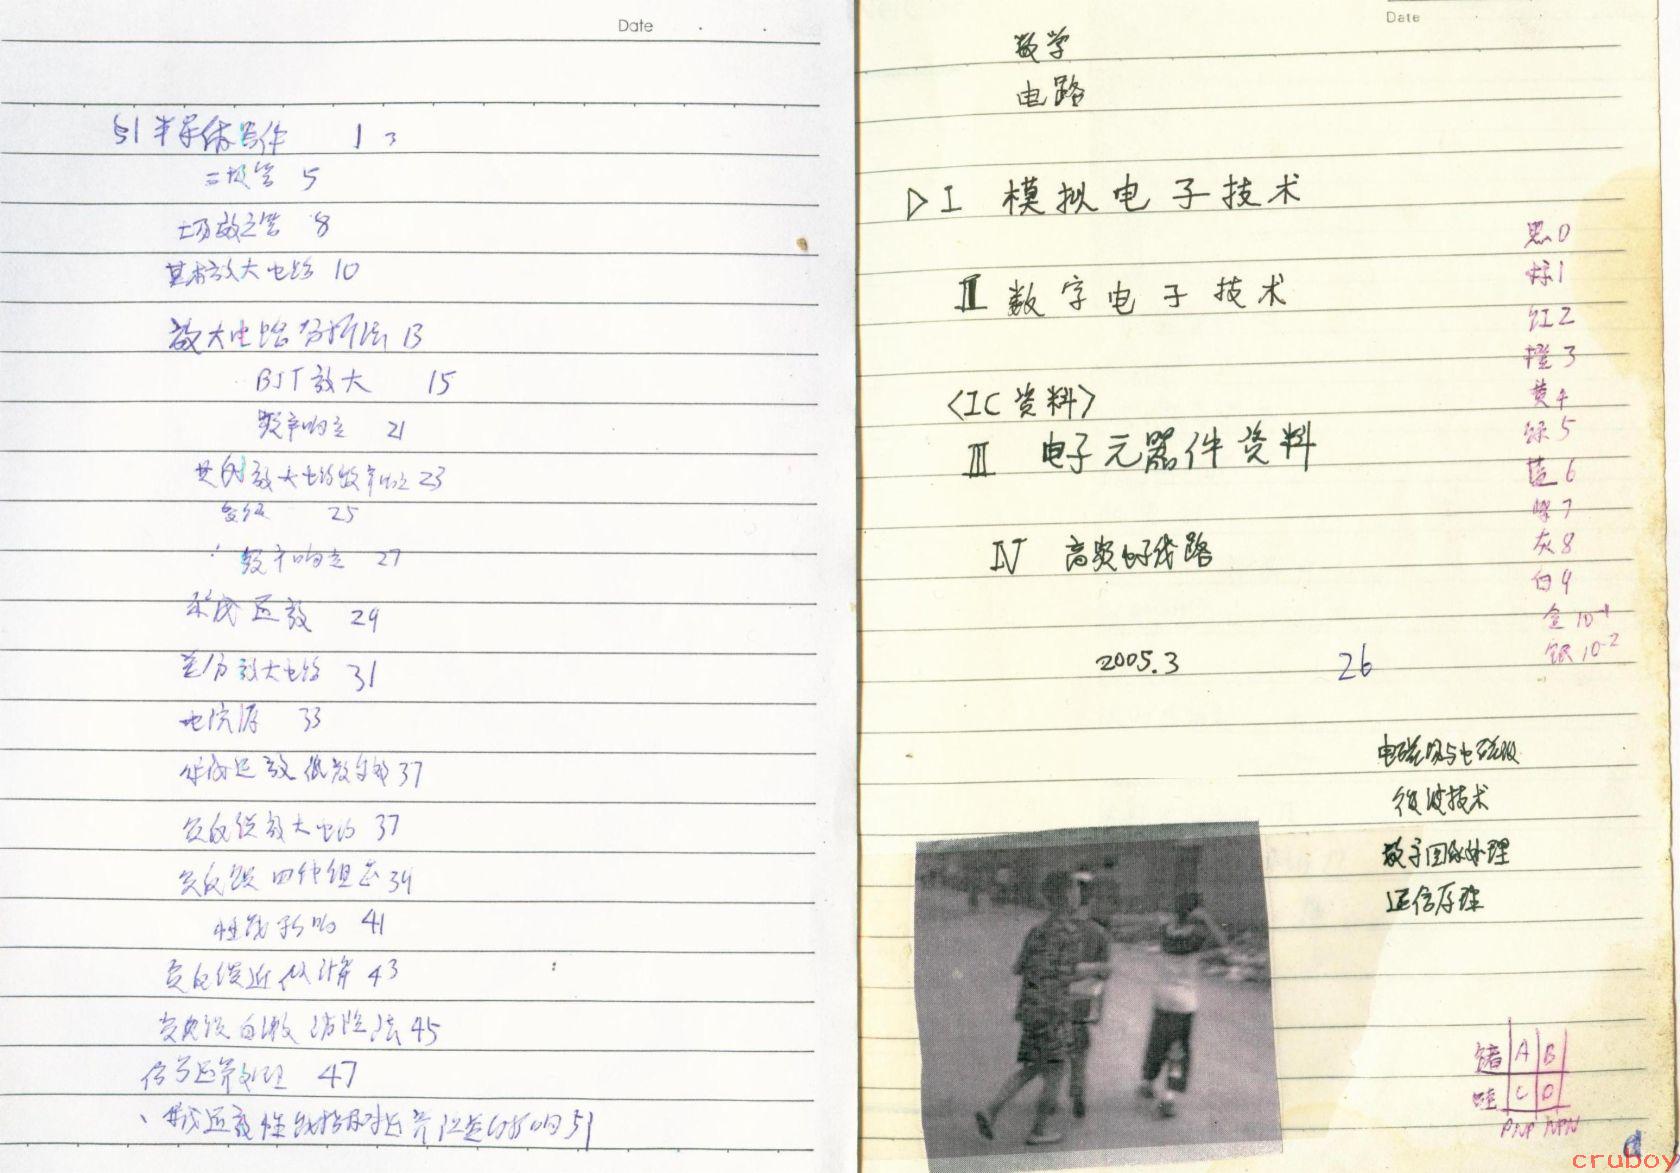 Date
§1 半导体器件 1 3
二极管 5
场效应管 8
基本放大电路 10
放大电路分析法 13
BJT放大 15
频率响应 21
共射放大电路频率响应 23
多级 25
频率响应 27
集成运放 29
差分放大电路 31
电流源 33
集成运放 37
负反馈放大电路 37
负反馈四种组态 39
性能影响 41
负反馈近似计算 43
负反馈自激消除法 45
信号运算处理 47
集成运放性能指标对运算误差的影响 51
Date
数学
电路
▷I 模拟电子技术
II 数字电子技术
〈IC资料〉
III 电子元器件资料
IV 高频电子线路
2005.3 26
黑0
棕1
红2
橙3
黄4
绿5
蓝6
紫7
灰8
白9
金10⁻¹
银10⁻²
电磁场与电磁波
微波技术
数字图像处理
通信原理
锗 A B
硅 C D
PNP NPN
cruboy